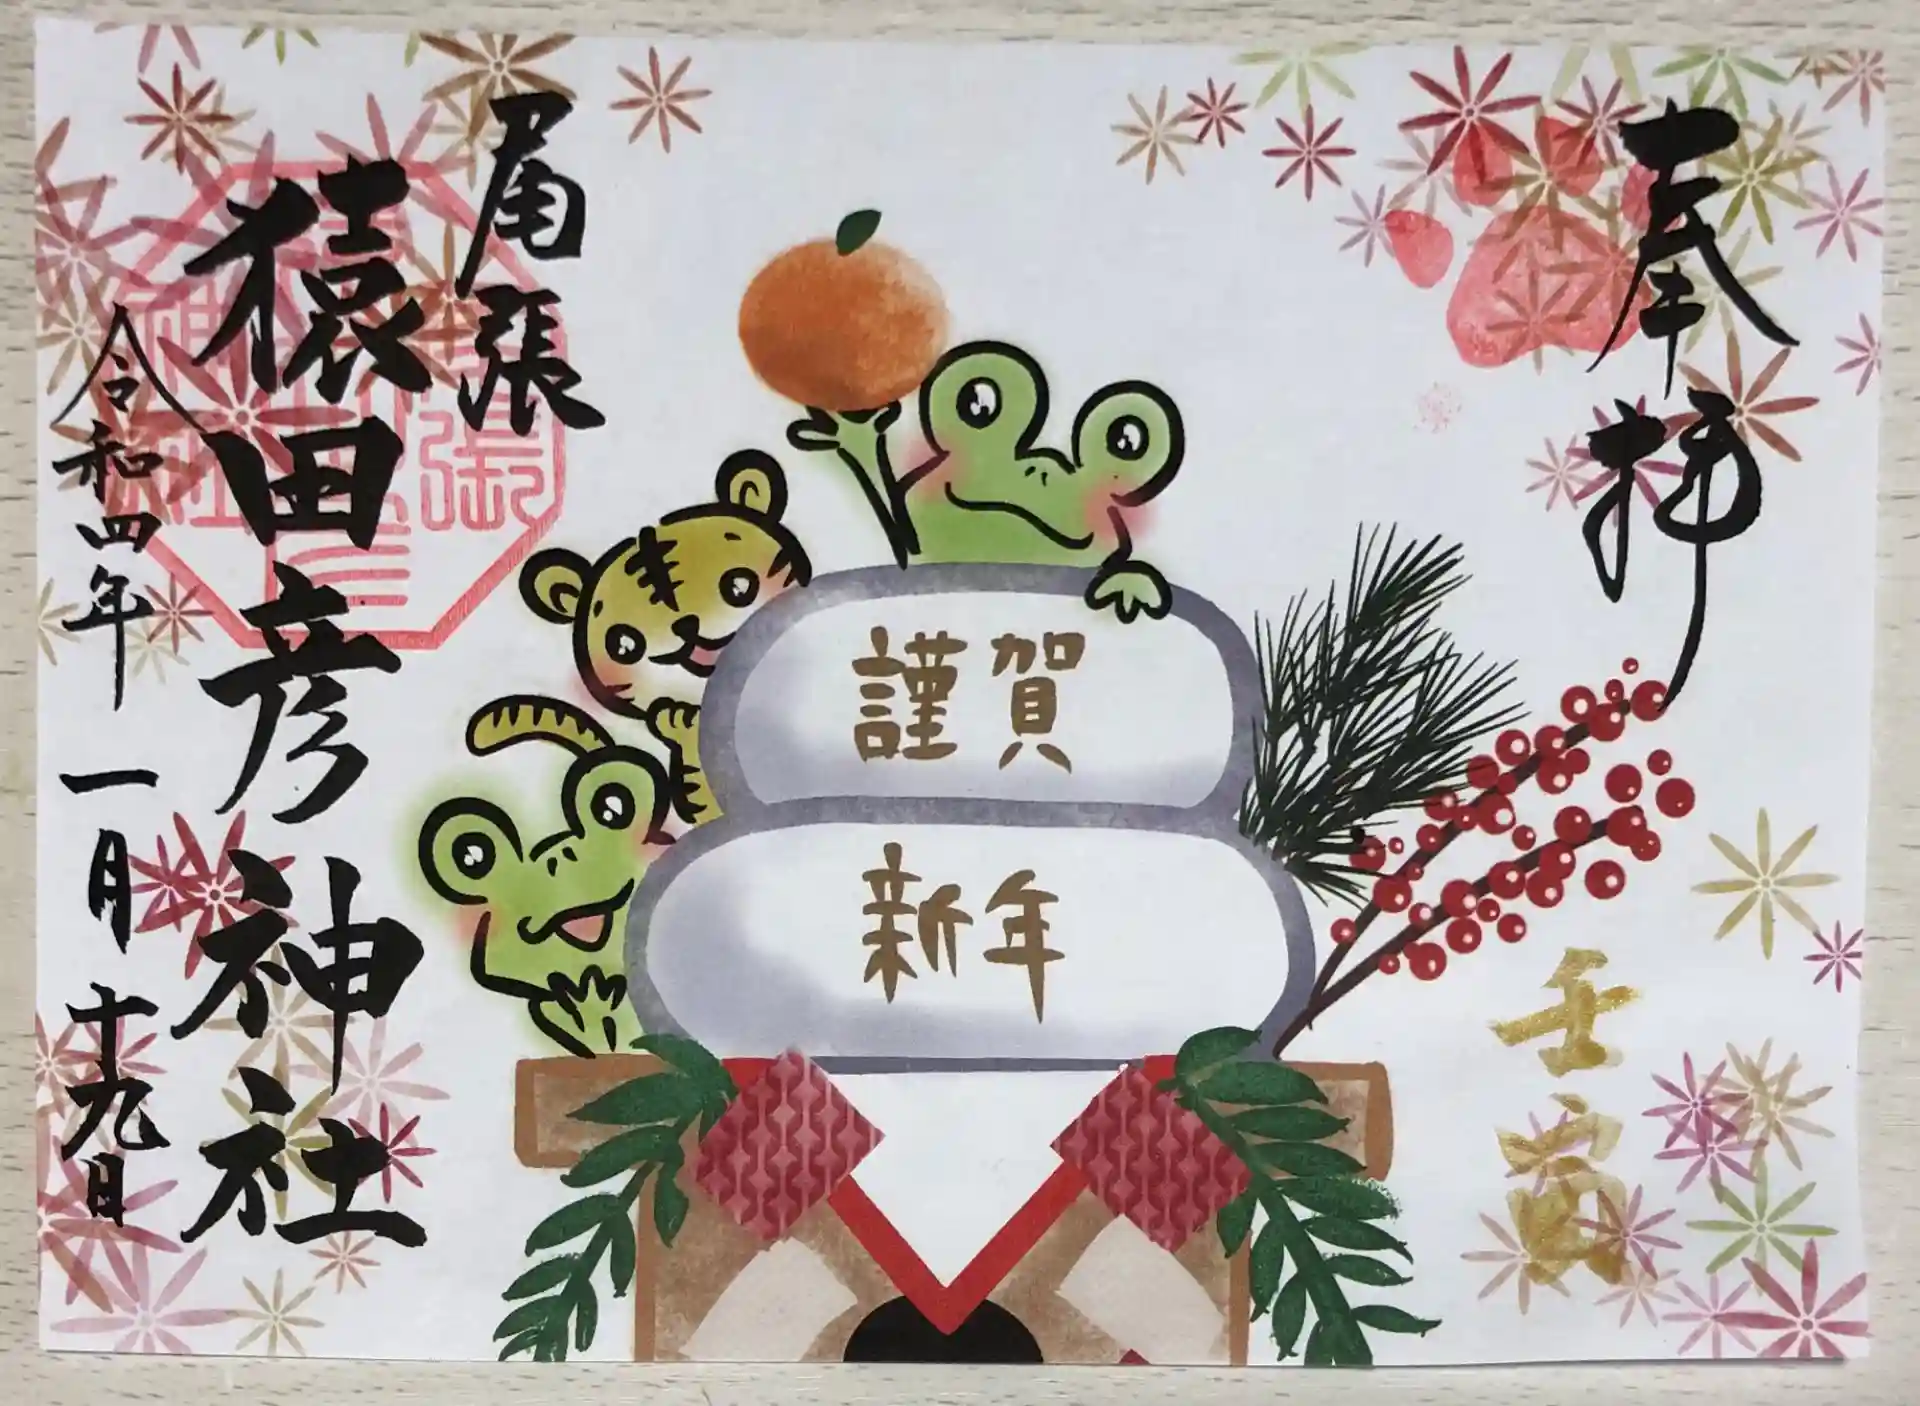 奉拝
壬寅
謹賀
新年
尾張
猿田彦神社
令和四年一月十九日